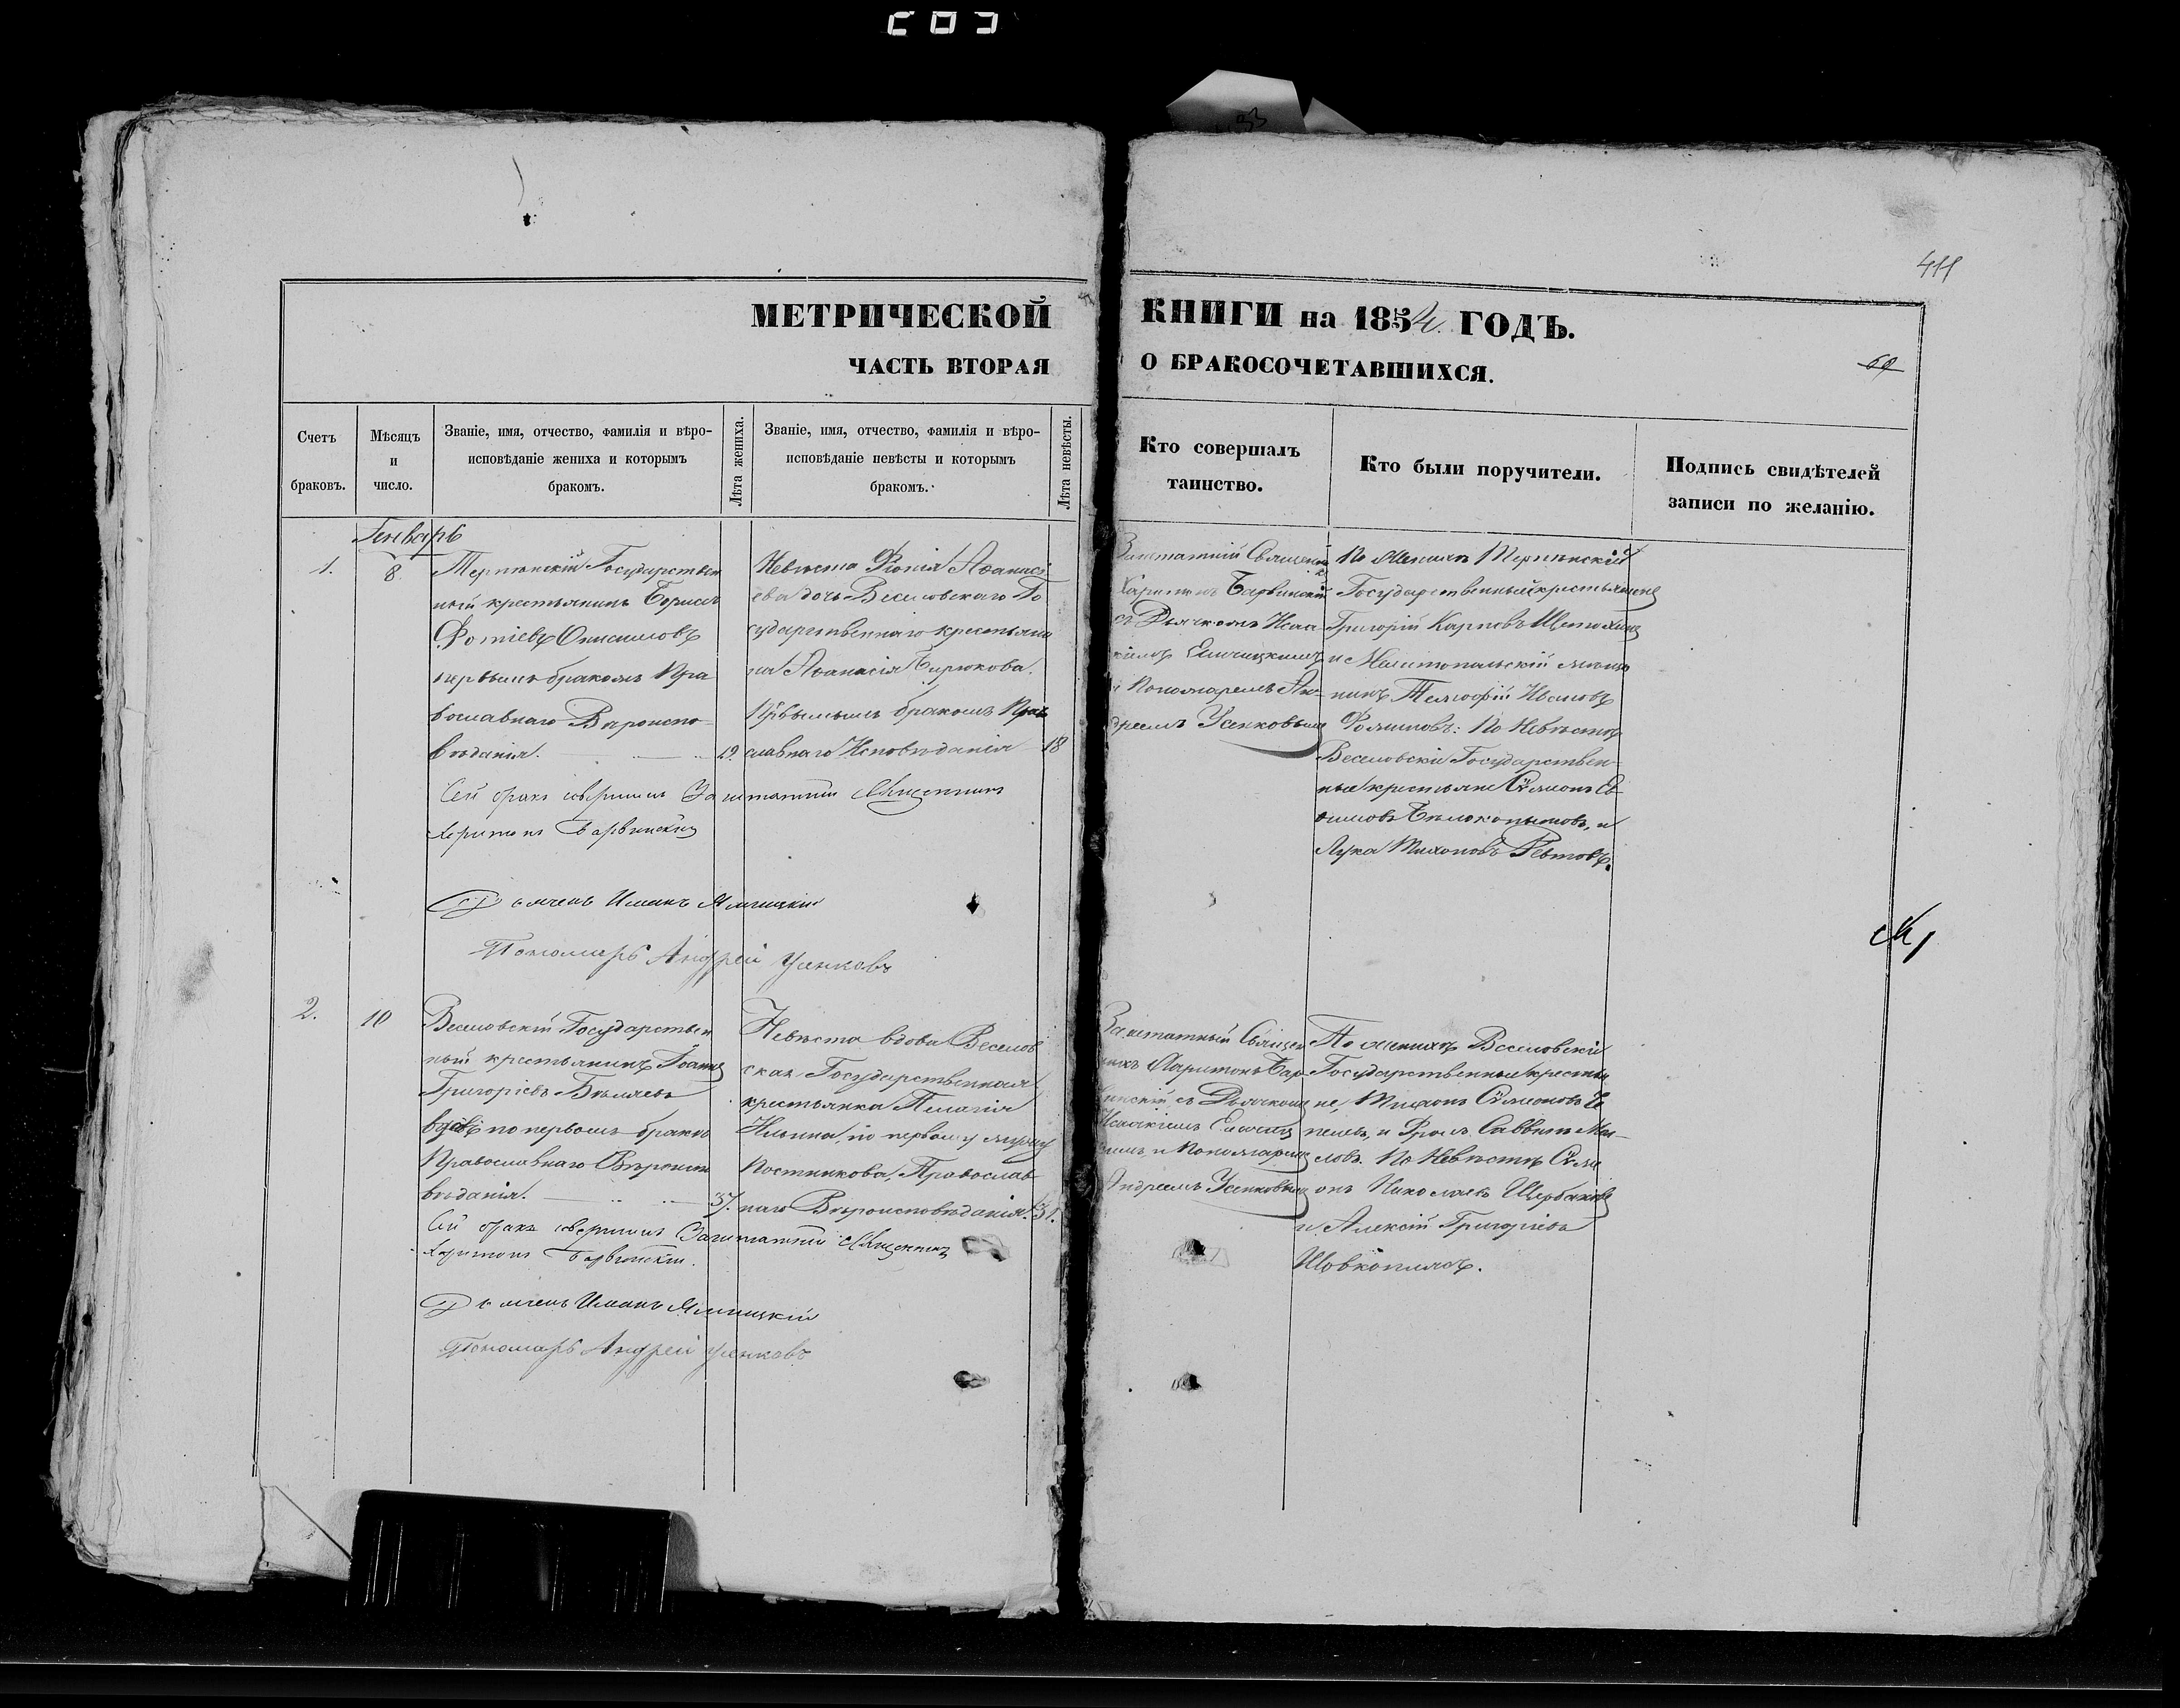 411
МЕТРИЧЕСКОЙ КНИГИ на 1854. ГОДЪ.
ЧАСТЬ ВТОРАЯ О БРАКОСОЧЕТАВШИХСЯ.
69
Счетъ браковъ.
Мѣсяцъ и число.
Званіе, имя, отчество, фамилія и вѣро-
исповѣданіе жениха и которымъ
бракомъ.
Лѣта жениха.
Званіе, имя, отчество, фамилія и вѣро-
исповѣданіе невѣсты и которымъ
бракомъ.
Лѣта невѣсты.
Кто совершалъ
таинство.
Кто были поручители.
Подпись свидѣтелей
записи по желанію.
Генварь
1.
8.
Терпѣнскій Государствен
ный крестьянинъ Борисъ
Фотіевъ Онисимовъ
первымъ бракомъ Пра
вославнаго Вѣроиспо-
вѣданія.
19.
Невѣста Аѳанасі
ева дочь Веселовскаго Го
сударственнаго крестьяни
на Аѳанасія Бирюкова.
бракомъ
славнаго Исповѣданія
18
Заштатній Священи
Харитонъ Барвинскій
съ Дьячкомъ Исаа
кіемъ
и Пономаремъ Ан-
дреемъ Усенковымъ
По Женихѣ Терпѣнскій
Государственный крестьянинъ
Григорій Карповъ
и Мелитопольскій мѣща
нинъ Ивановъ
По Невѣстѣ
Веселовскіе Государствен-
ные крестьяне Сѵмеонъ Еѳ
имовъ Бѣлокопытовъ, и
Лука Тихоновъ Ревтовъ.
Сей бракъ совершилъ Заштатній Священникъ
Харитонъ Барвинскій
Дьячекъ
Пономарь Андрей Усенковъ
2.
10
Веселовскій Государствен
ный крестьянинъ Іоаннъ
Григоріевъ Бѣляевъ
вдовъ по первомъ бракѣ
Православнаго Вѣроиспо
вѣданія.
37.
Невѣста вдова Веселов
ская Государственная
крестьянка Пелагія
Ильина, по первому мужу
Постникова, Православ
наго Вѣроисповѣданія.
31.
Заштатный Священ
никъ Харитонъ Бар
винскій съ Дьячкомъ
Исаакіемъ
и Пономаремъ
Андреемъ Усенковымъ
По женихѣ Веселовскіе
Государственные крестья
не, Сѵмеоновъ
и Фролъ Саввинъ Мас-
ловъ. По Невѣстѣ Сѵме
онъ Николаевъ Щербаковъ
и Алексій Григоріевъ
Шовкоплясъ.
Сей бракъ совершилъ Заштатній Священникъ
Харитонъ Барвинскій.
Дьячекъ
Пономарь Андрей Усенковъ